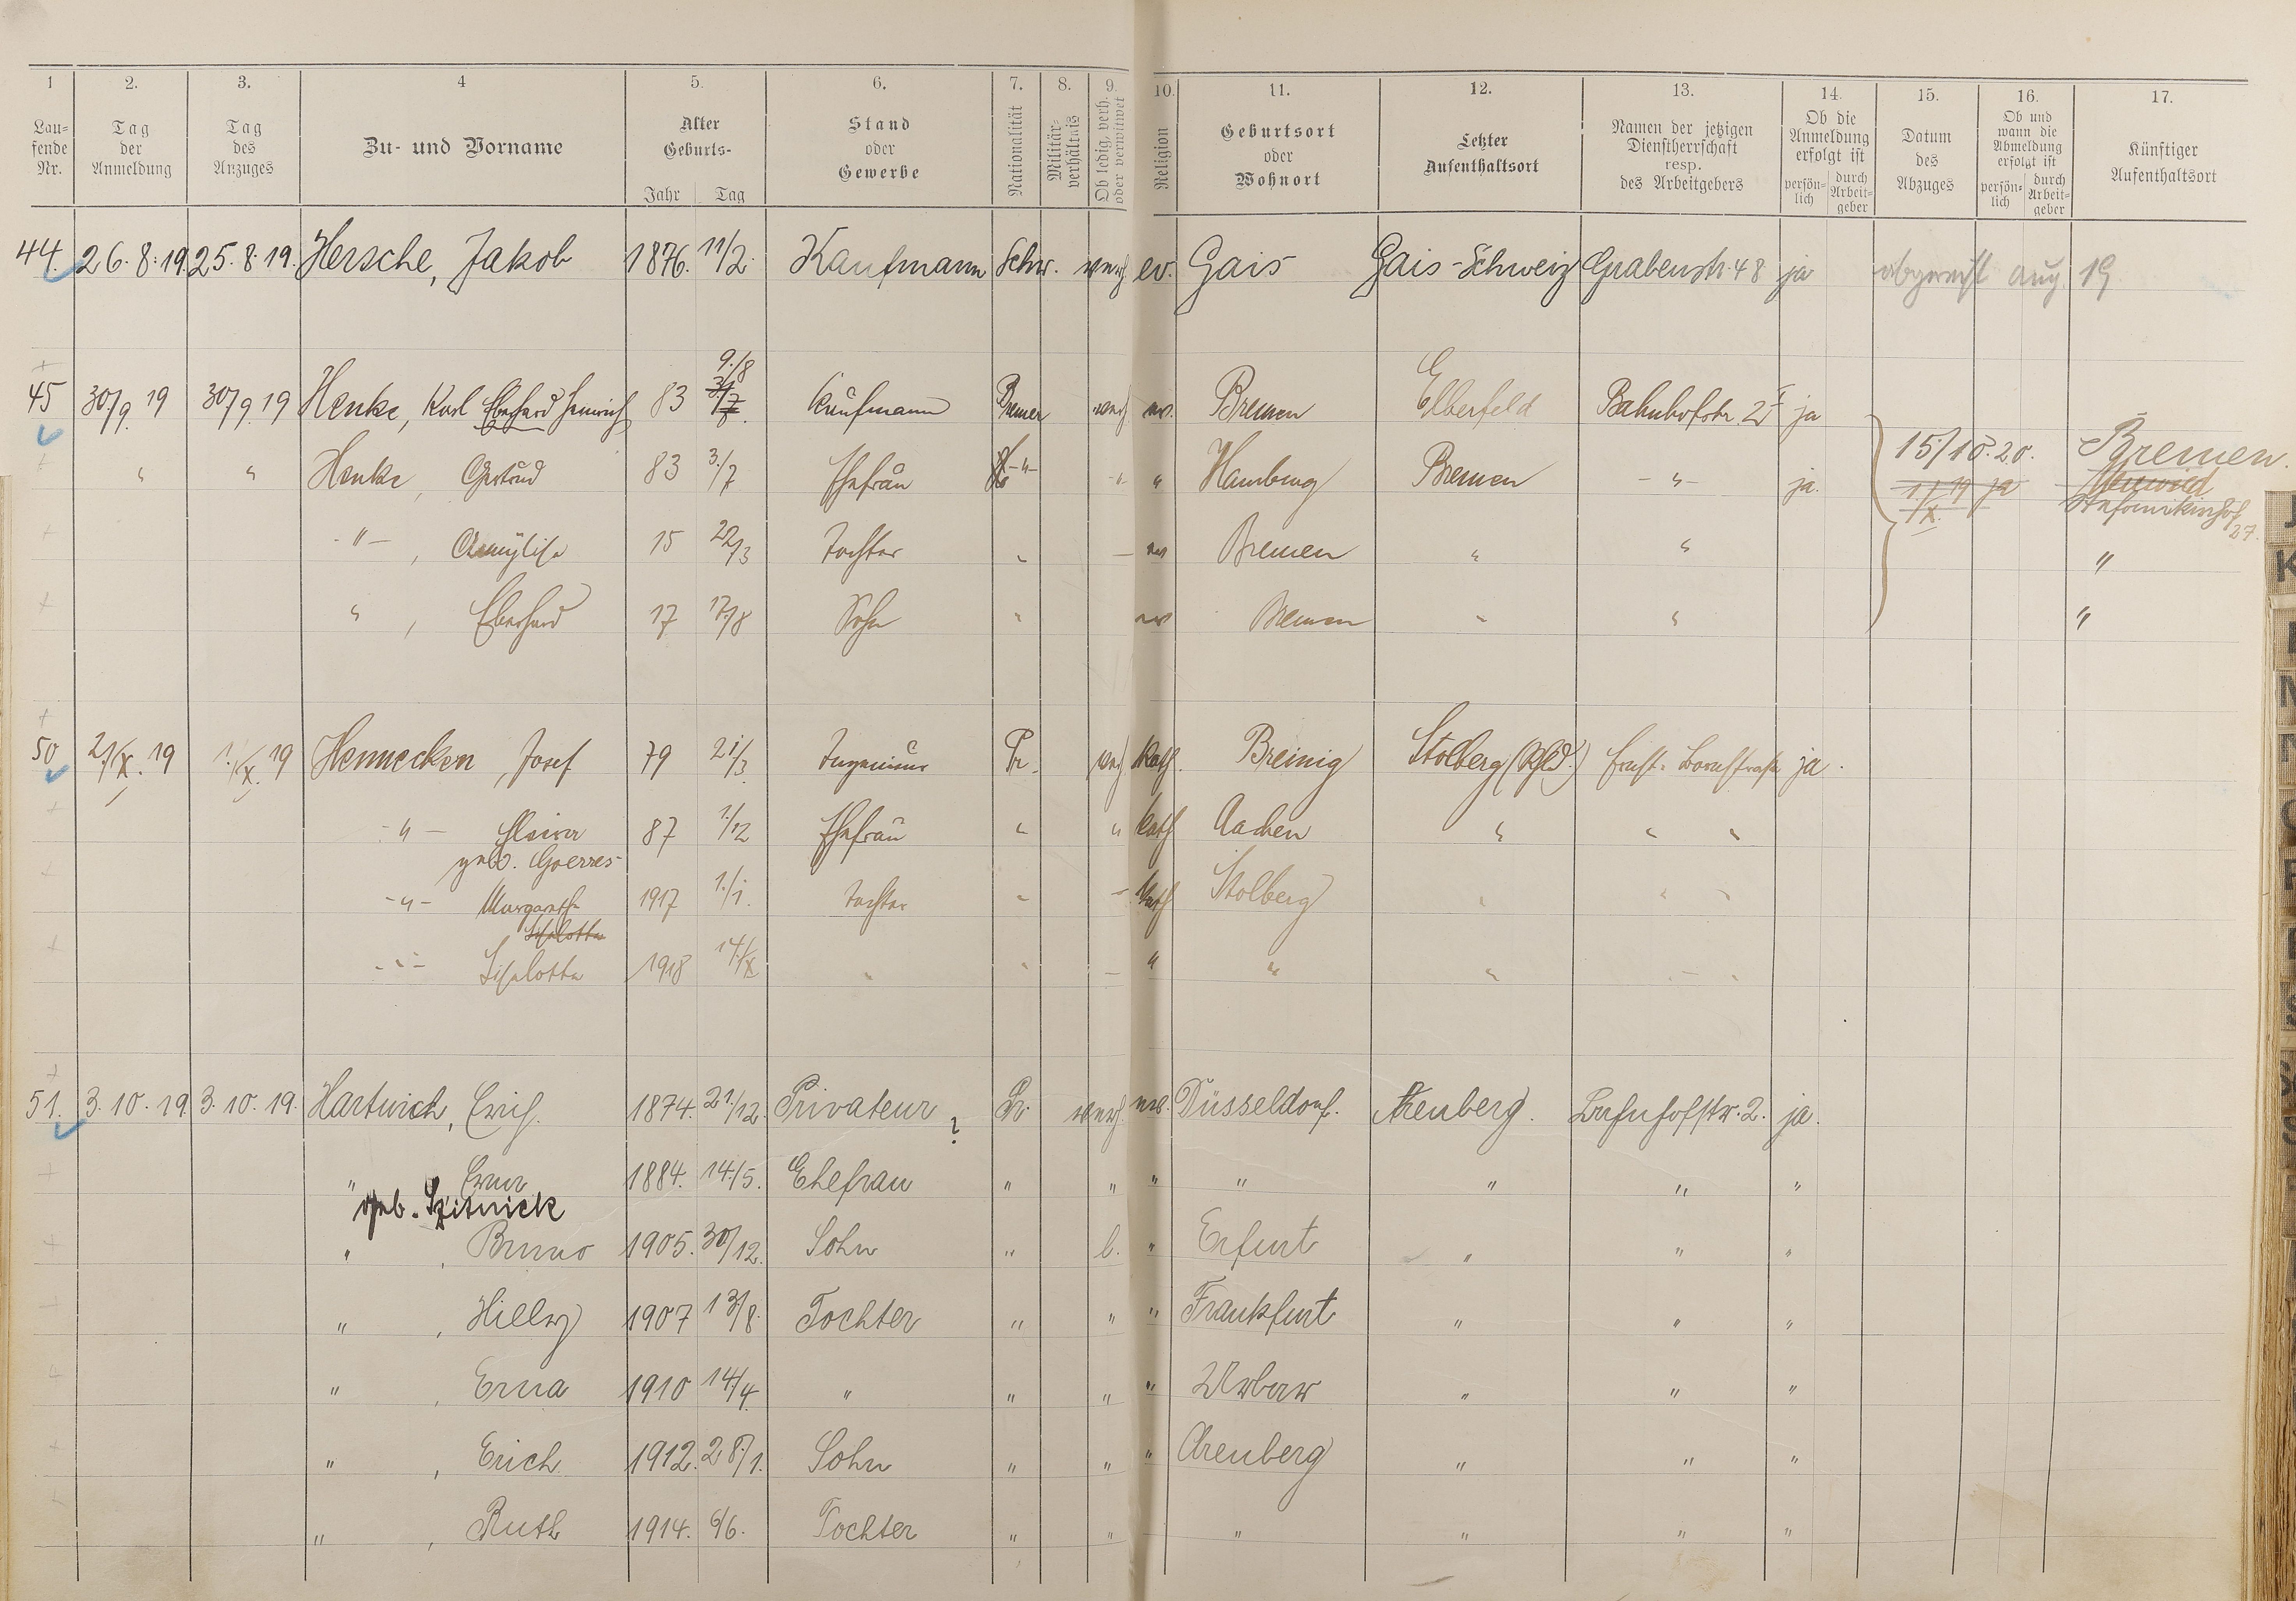 1 2. 3. 4 5. 6. 7. 8. 9. 10. 11. 12. 13. 14. 15. 16. 17.
Lau-
fende
Nr.
Tag
der
Anmeldung
Tag
des
Anzuges
Zu- und Vorname
Alter
Geburts-
Jahr Tag
Stand
oder
Gewerbe
Nationalität
Militär-
verhältnis
Ob ledig, verh.
oder verwitwet
Religion
Geburtsort
oder
Wohnort
Letzter
Aufenthaltsort
Namen der jetzigen
Dienstherrschaft
resp.
des Arbeitgebers
Ob die
Anmeldung
erfolgt ist
persön-
lich
durch
Arbeit-
geber
Datum
des
Abzuges
Ob und
wann die
Abmeldung
erfolgt ist
persön-
lich
durch
Arbeit-
geber
Künftiger
Aufenthaltsort
44. 26.8.19. 25.8.19. Hersche, Jakob 1876. 11/2. Kaufmann Schw. verh. ev. Gais Gais-Schweiz Grabenstr. 48 ja abgereist Aug. 19
9./8
45 30./9. 19 30./9. 19 Henke, Karl Eberhard Heinrich 83 3./7. Kaufmann Bremer verh. ev. Bremen Elberfeld Bahnhofstr. 2 I ja
15./10.20. Bremen.
" " Henke, Gertrud 83 3./7 Ehefrau -"- -"- " Hamburg Bremen -"- ja. 1./X. 19 ja Neuwied
27.
-"-, Annylise 15 22/3 Tochter " — ev Bremen " " "
", Eberhard 17 17./8 Sohn " ev Bremen " " "
50 2./X. 19 1./X. 19 Hennecken, Josef 79 21/3. Ingenieur Pr. verh. kath. Breinig Stolberg (Rhld.) Ernst-Bornstrasse ja.
-"- 87 1./12 Ehefrau " " kath Aachen " " "
geb. Goerres
-"- Margarethe 1917 1./1. Tochter " — kath Stolberg " " "
Liselotte
-"- Liselotte 1918 14./X " " — " " " - "
51. 3.10.19. 3.10.19. Hartwich, Erich. 1874. 21./12. Privateur ? Pr. verh. ev. Düsseldorf. Arenberg. Bahnhofstr. 2. ja.
" Erna 1884. 14./5. Ehefrau " " " " " " "
geb.
", Bruno 1905. 30/12. Sohn " l. " Erfurt " " "
", Hilly 1907 13./8. Tochter " " " Frankfurt " " "
", Erna 1910 14/4. " " " " Urbar " " "
", Erich 1912. 28./1. Sohn " " " Arenberg " " "
", Ruth 1914. 6/6. Tochter " " " " " "